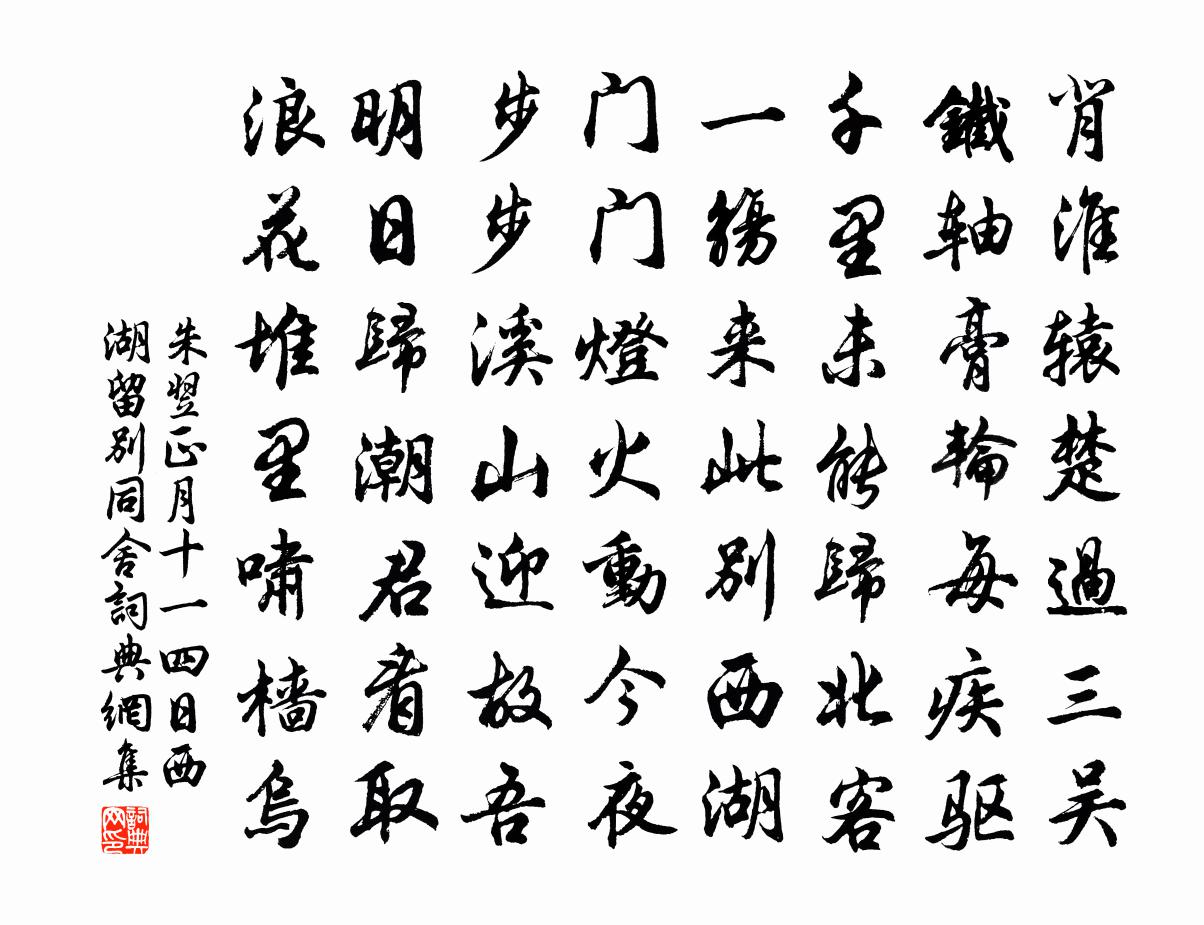 背淮辕楚過三吴
鐵轴膏輪每疾驱
千里未能歸北客
一觴来此别西湖
门门燈火動今夜
步步溪山迎故吾
明日歸潮君看取
浪花堆里啸樯烏
朱翌正月十一四日西
湖留别同舍詞典網集
詞典
网印